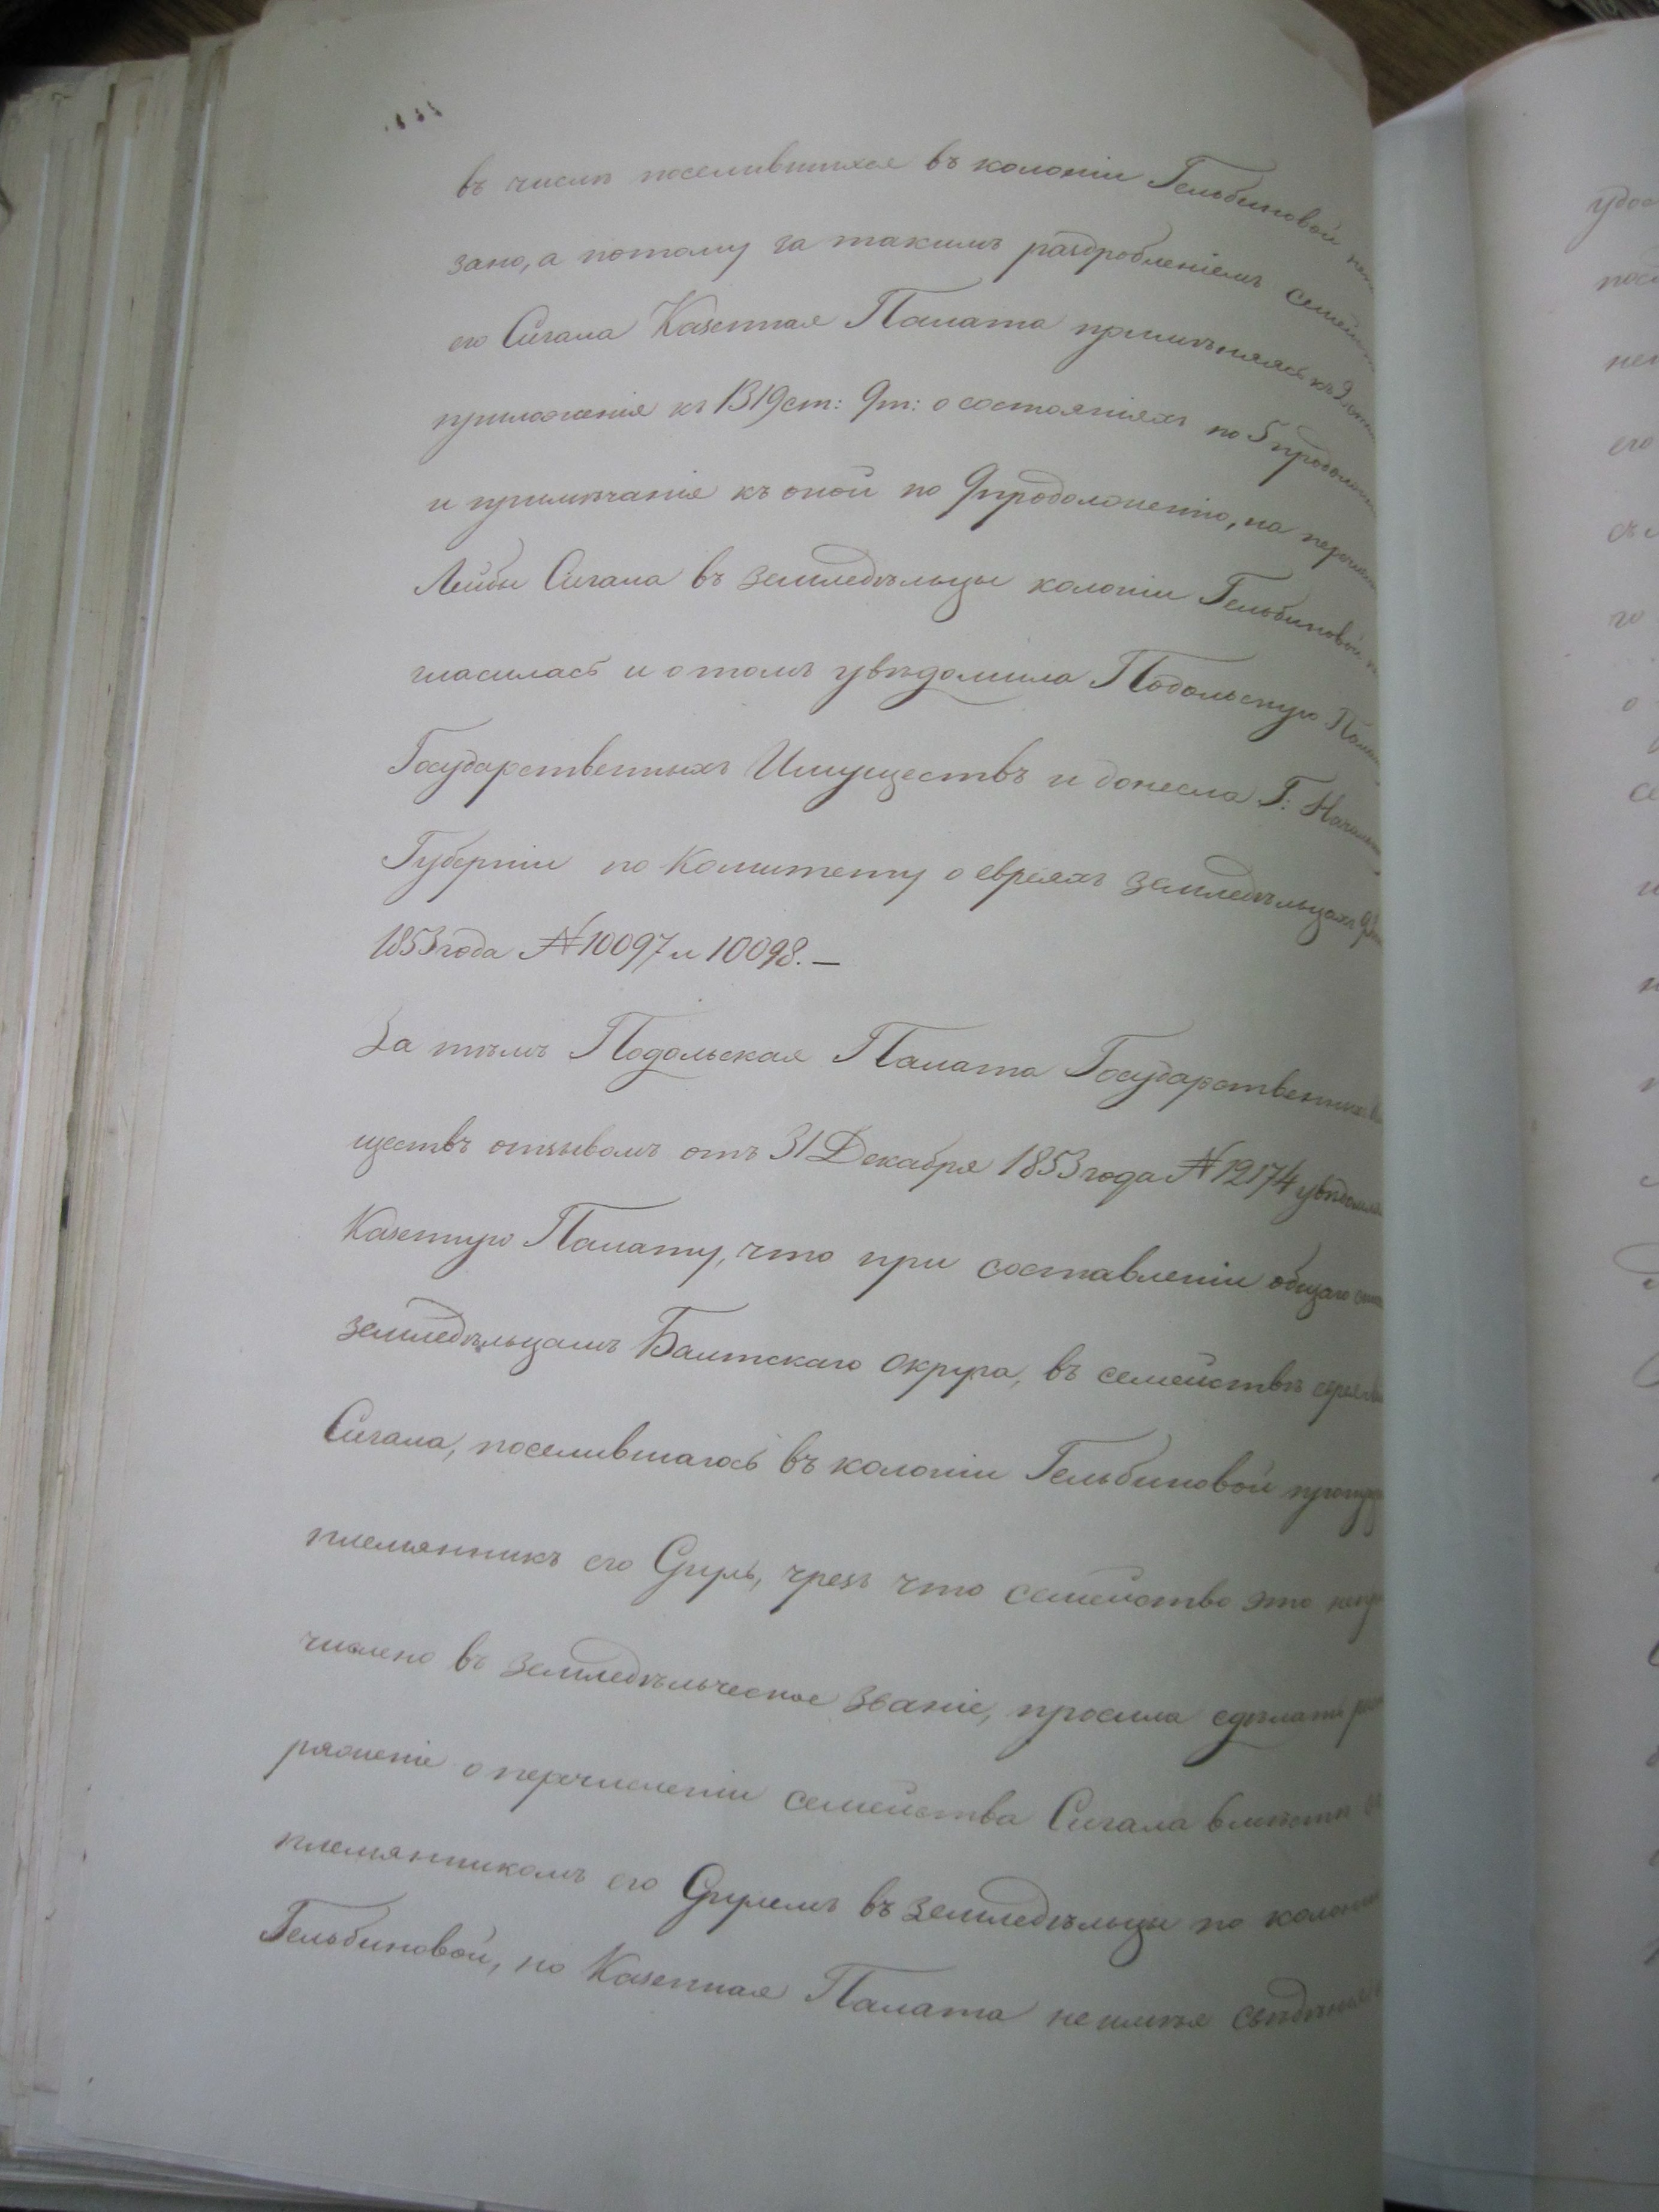 въ числѣ поселившихся въ колоніи Гельбиновой
зано, а потому за такимъ раздробленіемъ
его Сигала Казенная Палата примѣняясь къ
приложенія къ 1319 ст: 9 т: о состояніяхъ по 5
и примѣчанія къ оной по 9 продолженію, на
Лейбы Сигала въ земледѣльцы колоніи Гельбиновой
гласилась и о томъ увѣдомила Подольскую
Государственныхъ Имуществъ и донесла Г:
Губерніи по Комитету о евреяхъ земледѣльцахъ
1853 года № 10097 и 10098. —
За тѣмъ Подольская Палата Государственныхъ
ществъ отзывомъ отъ 31 Декабря 1853 года № 12174
Казенную Палату, что при составленіи общаго
земледѣльцамъ Балтскаго округа, въ семействѣ
Сигала, поселившагось въ колоніи Гельбиновой
племянникъ его Сруль, чрезъ что семейство это
числено въ земледѣльческое званіе, просила сдѣлать
ряженіе о перечисленіи семейства Сигала вмѣстѣ
племянникомъ его Срулемъ въ земледѣльцы по
Гельбиновой, но Казенная Палата не имѣя